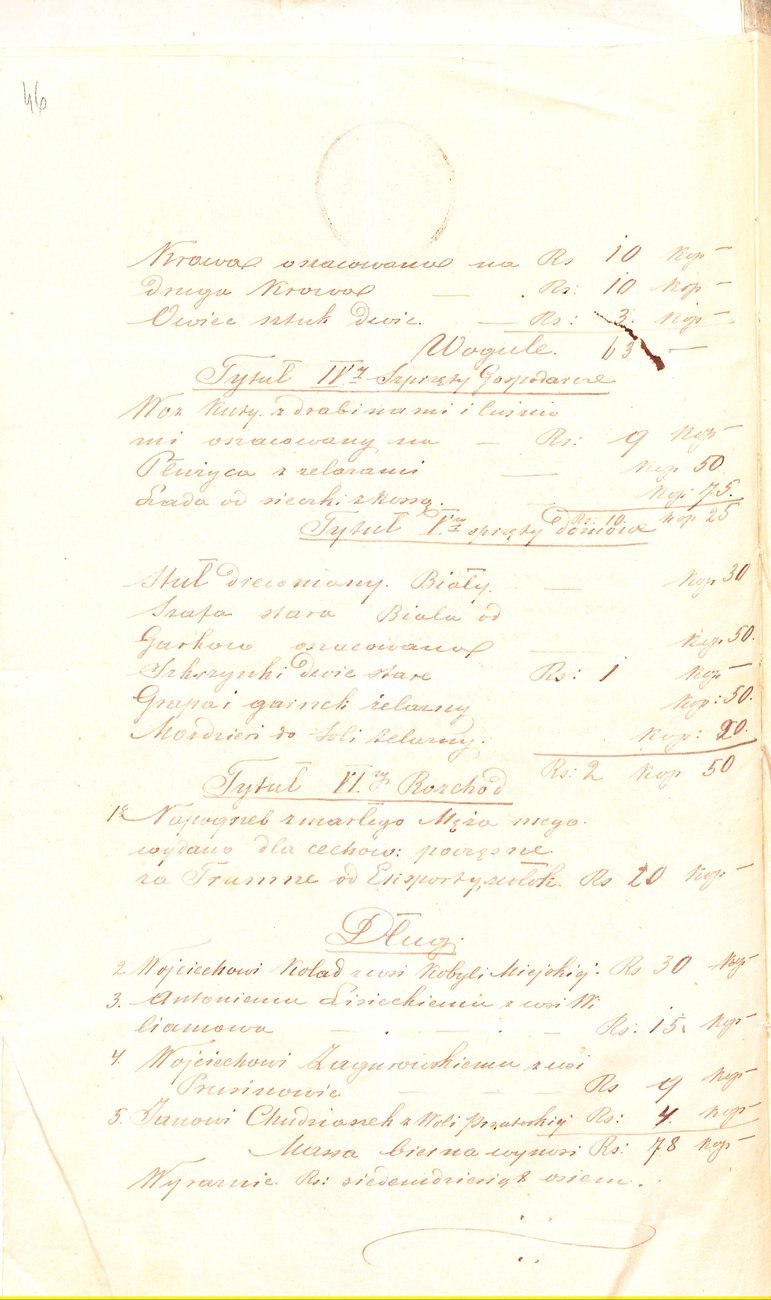 46
Krowa oszacowana na Rs 10 kop –
druga Krowa — Rs: 10 kop –
Owiec sztuk dwie. — Rs: 3. kop –
Wogule. 63 –
Tytuł IV.ty Szprzęty Gospodarcze
Woz kuty. z drabinami i luśnia
mi oszacowany na — Rs: 9 kop –
Płużyca z zelazami — kop 50
Łada od sieczki z kossą. — kop 75.
Rs: 10. kop 25
Tytuł V.ty sprzęty domowe
Stuł drewniany. Biały. — kop 30
Szafa stara Biała od
Garkow oszacowana — kop. 50.
Szkrzynki dwie stare Rs: 1 kop –
Grapa i garnek żelazny kop: 50.
Mozdzierz do Soli żelazny. kop: 20.
Rs: 2 kop 50
Tytuł VI.ty Rozchód
1. Napogrzeb zmarłego Męża mego
wydano dla cechow:
za Trumne od Eksporty, Rs 20 kop –
Dług.
2. Wojciechowi Koład z wsi Kobyli Miejskiej. Rs 30 kop –
3. Antoniemu Lisieckiemu z wsi Wi
liamowa — . — . — Rs: 15. kop –
4. Wojciechowi Zagurowskiemu z wsi
Prusinowic — — — Rs 9 kop –
5. Janowi Chudzianek z Woli Rs: 4. kop –
Massa bierna wynosi Rs: 78 kop –
Wyraznie Rs: siedemdziesiąt osiem.